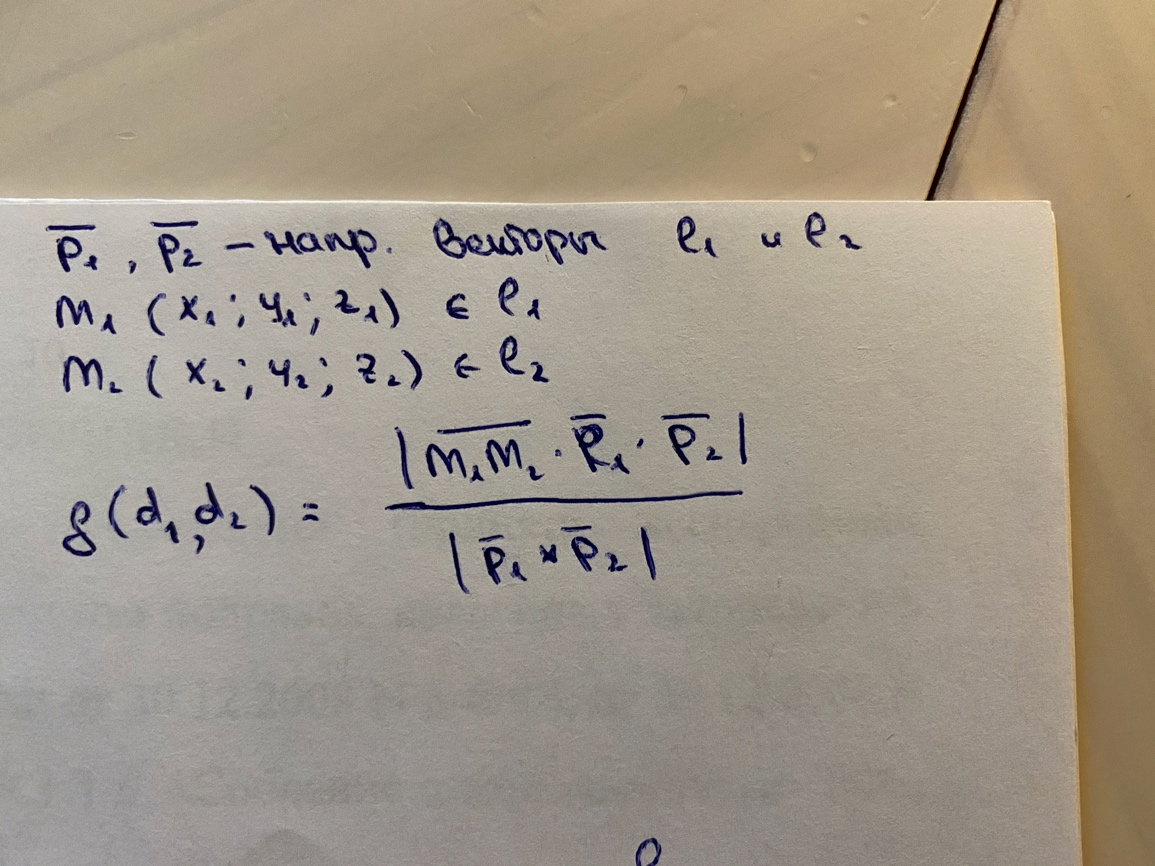 p̅₁, p̅₂ – напр. векторы ℓ₁ и ℓ₂
M₁ (x₁; y₁; z₁) ∈ ℓ₁
M₂ (x₂; y₂; z₂) ∈ ℓ₂
|M₁M₂‾ · p̅₁ · p̅₂|
ρ(d₁, d₂) =
|p̅₁ × p̅₂|